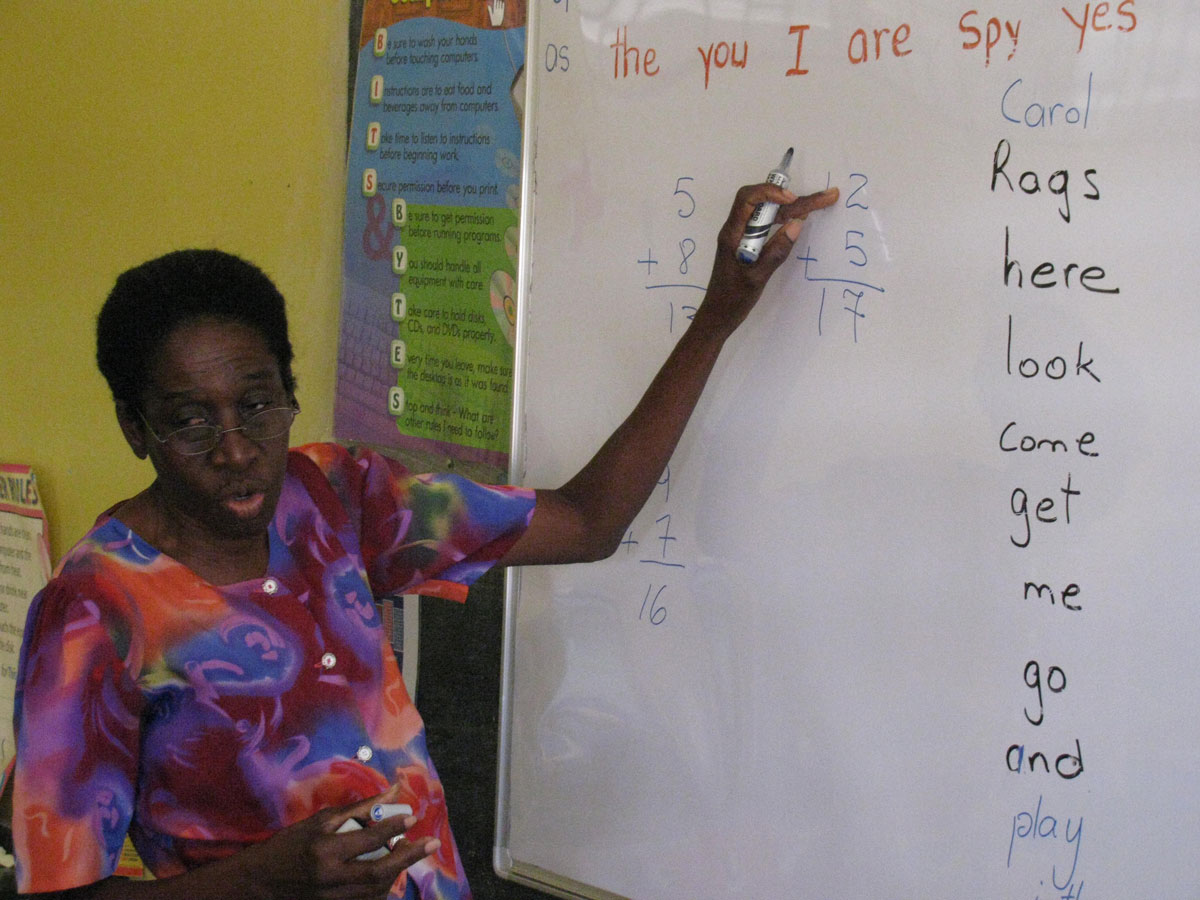 Be sure to wash your hands
before touching computers.
Instructions are to eat food and
beverages away from computers.
Take time to listen to instructions
before beginning work.
Secure permission before you print.
&
Be sure to get permission
before running programs.
You should handle all
equipment with care.
Take care to hold disks,
CDs, and DVDs properly.
Every time you leave, make sure
the desktop is as it was found.
Stop and think - What are
other rules I need to follow?
as the you I are spy yes
5
+ 8
13
12
+ 5
17
9
+ 7
16
Carol
Rags
here
look
come
get
me
go
and
play